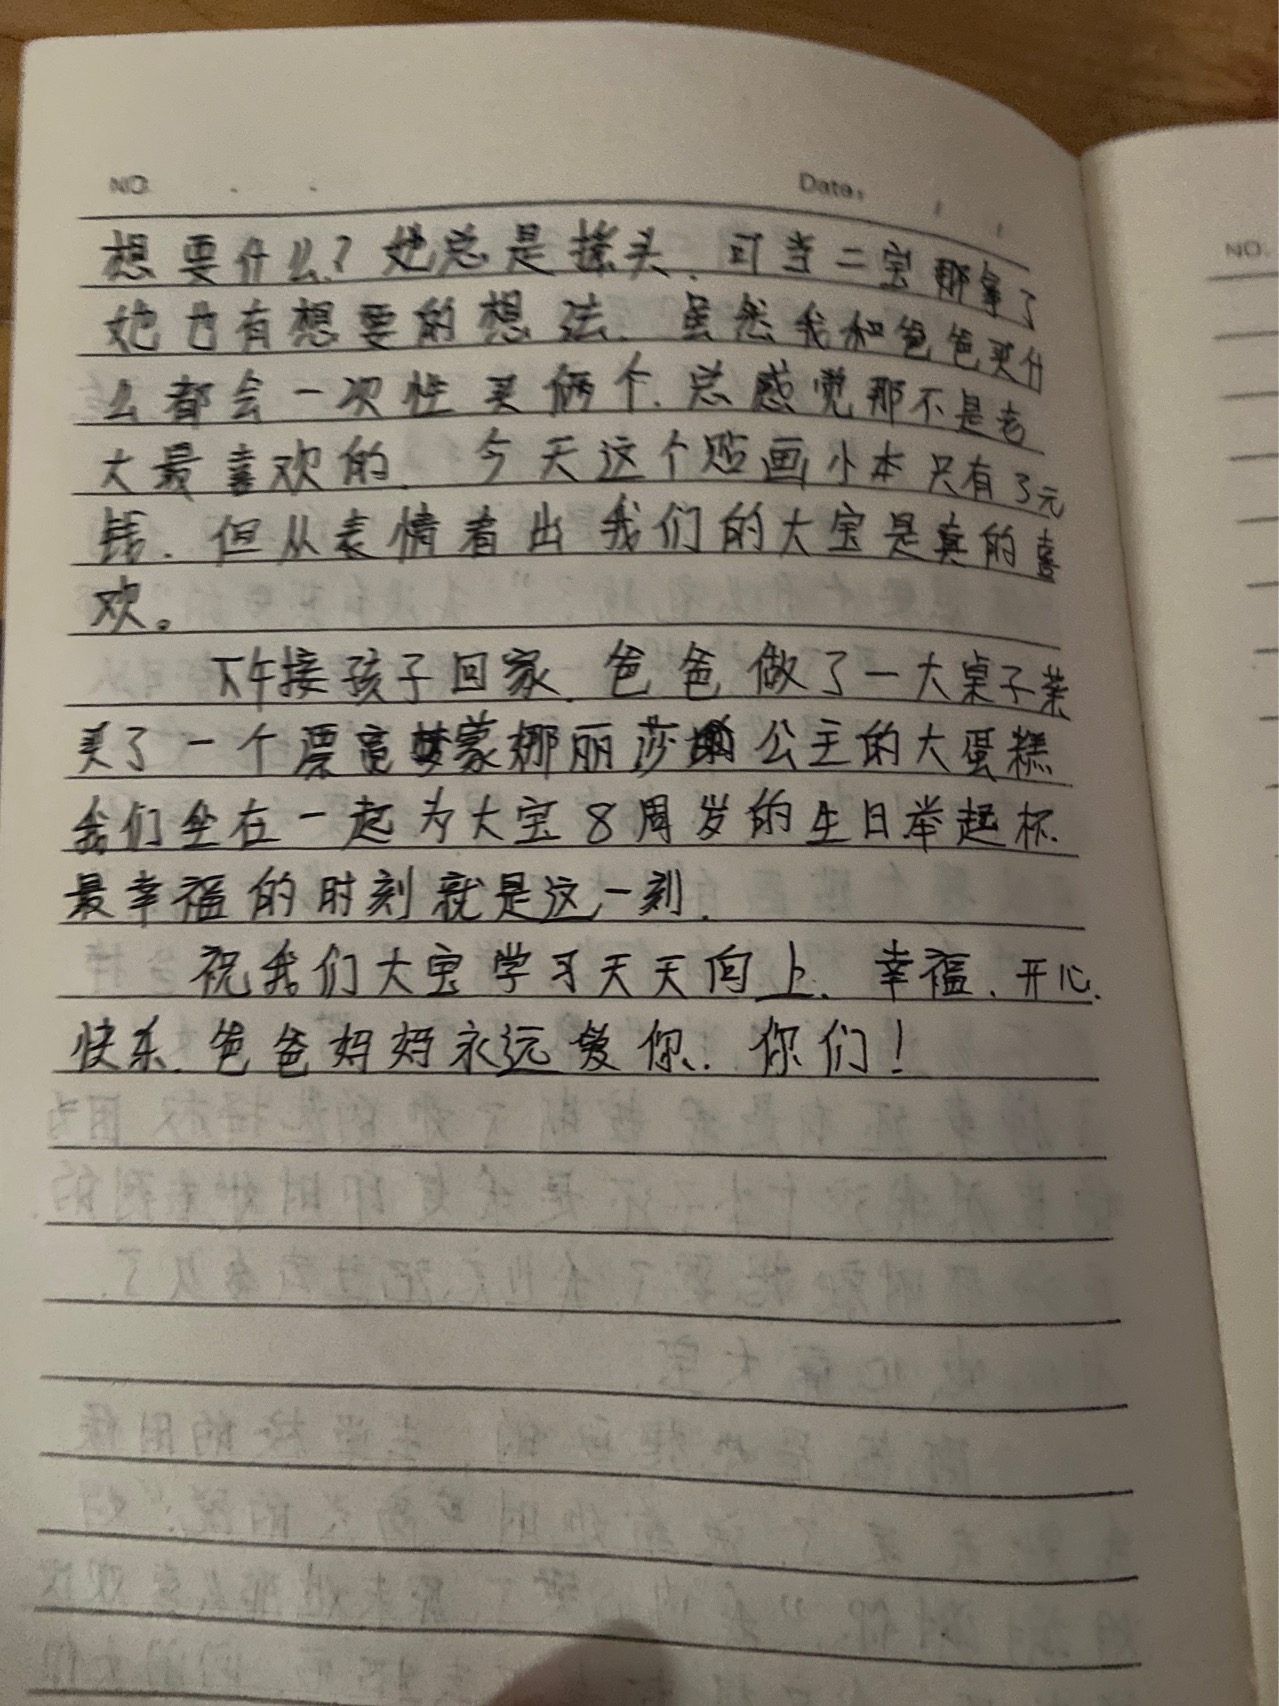 NO.
Date:
想要什么?她总是摇头.可当二宝那拿了
她也有想要的想法.虽然我和爸爸买什
么都会一次性买俩个.总感觉那不是老
大最喜欢的.今天这个贴画小本只有3元
钱.但从表情看出我们的大宝是真的喜
欢。
下午接孩子回家.爸爸做了一大桌子菜
买了一个漂亮蒙娜丽莎公主的大蛋糕
我们坐在一起为大宝8周岁的生日举起杯.
最幸福的时刻就是这一刻.
祝我们大宝学习天天向上.幸福、开心.
快乐.爸爸妈妈永远爱你.你们!
NO.